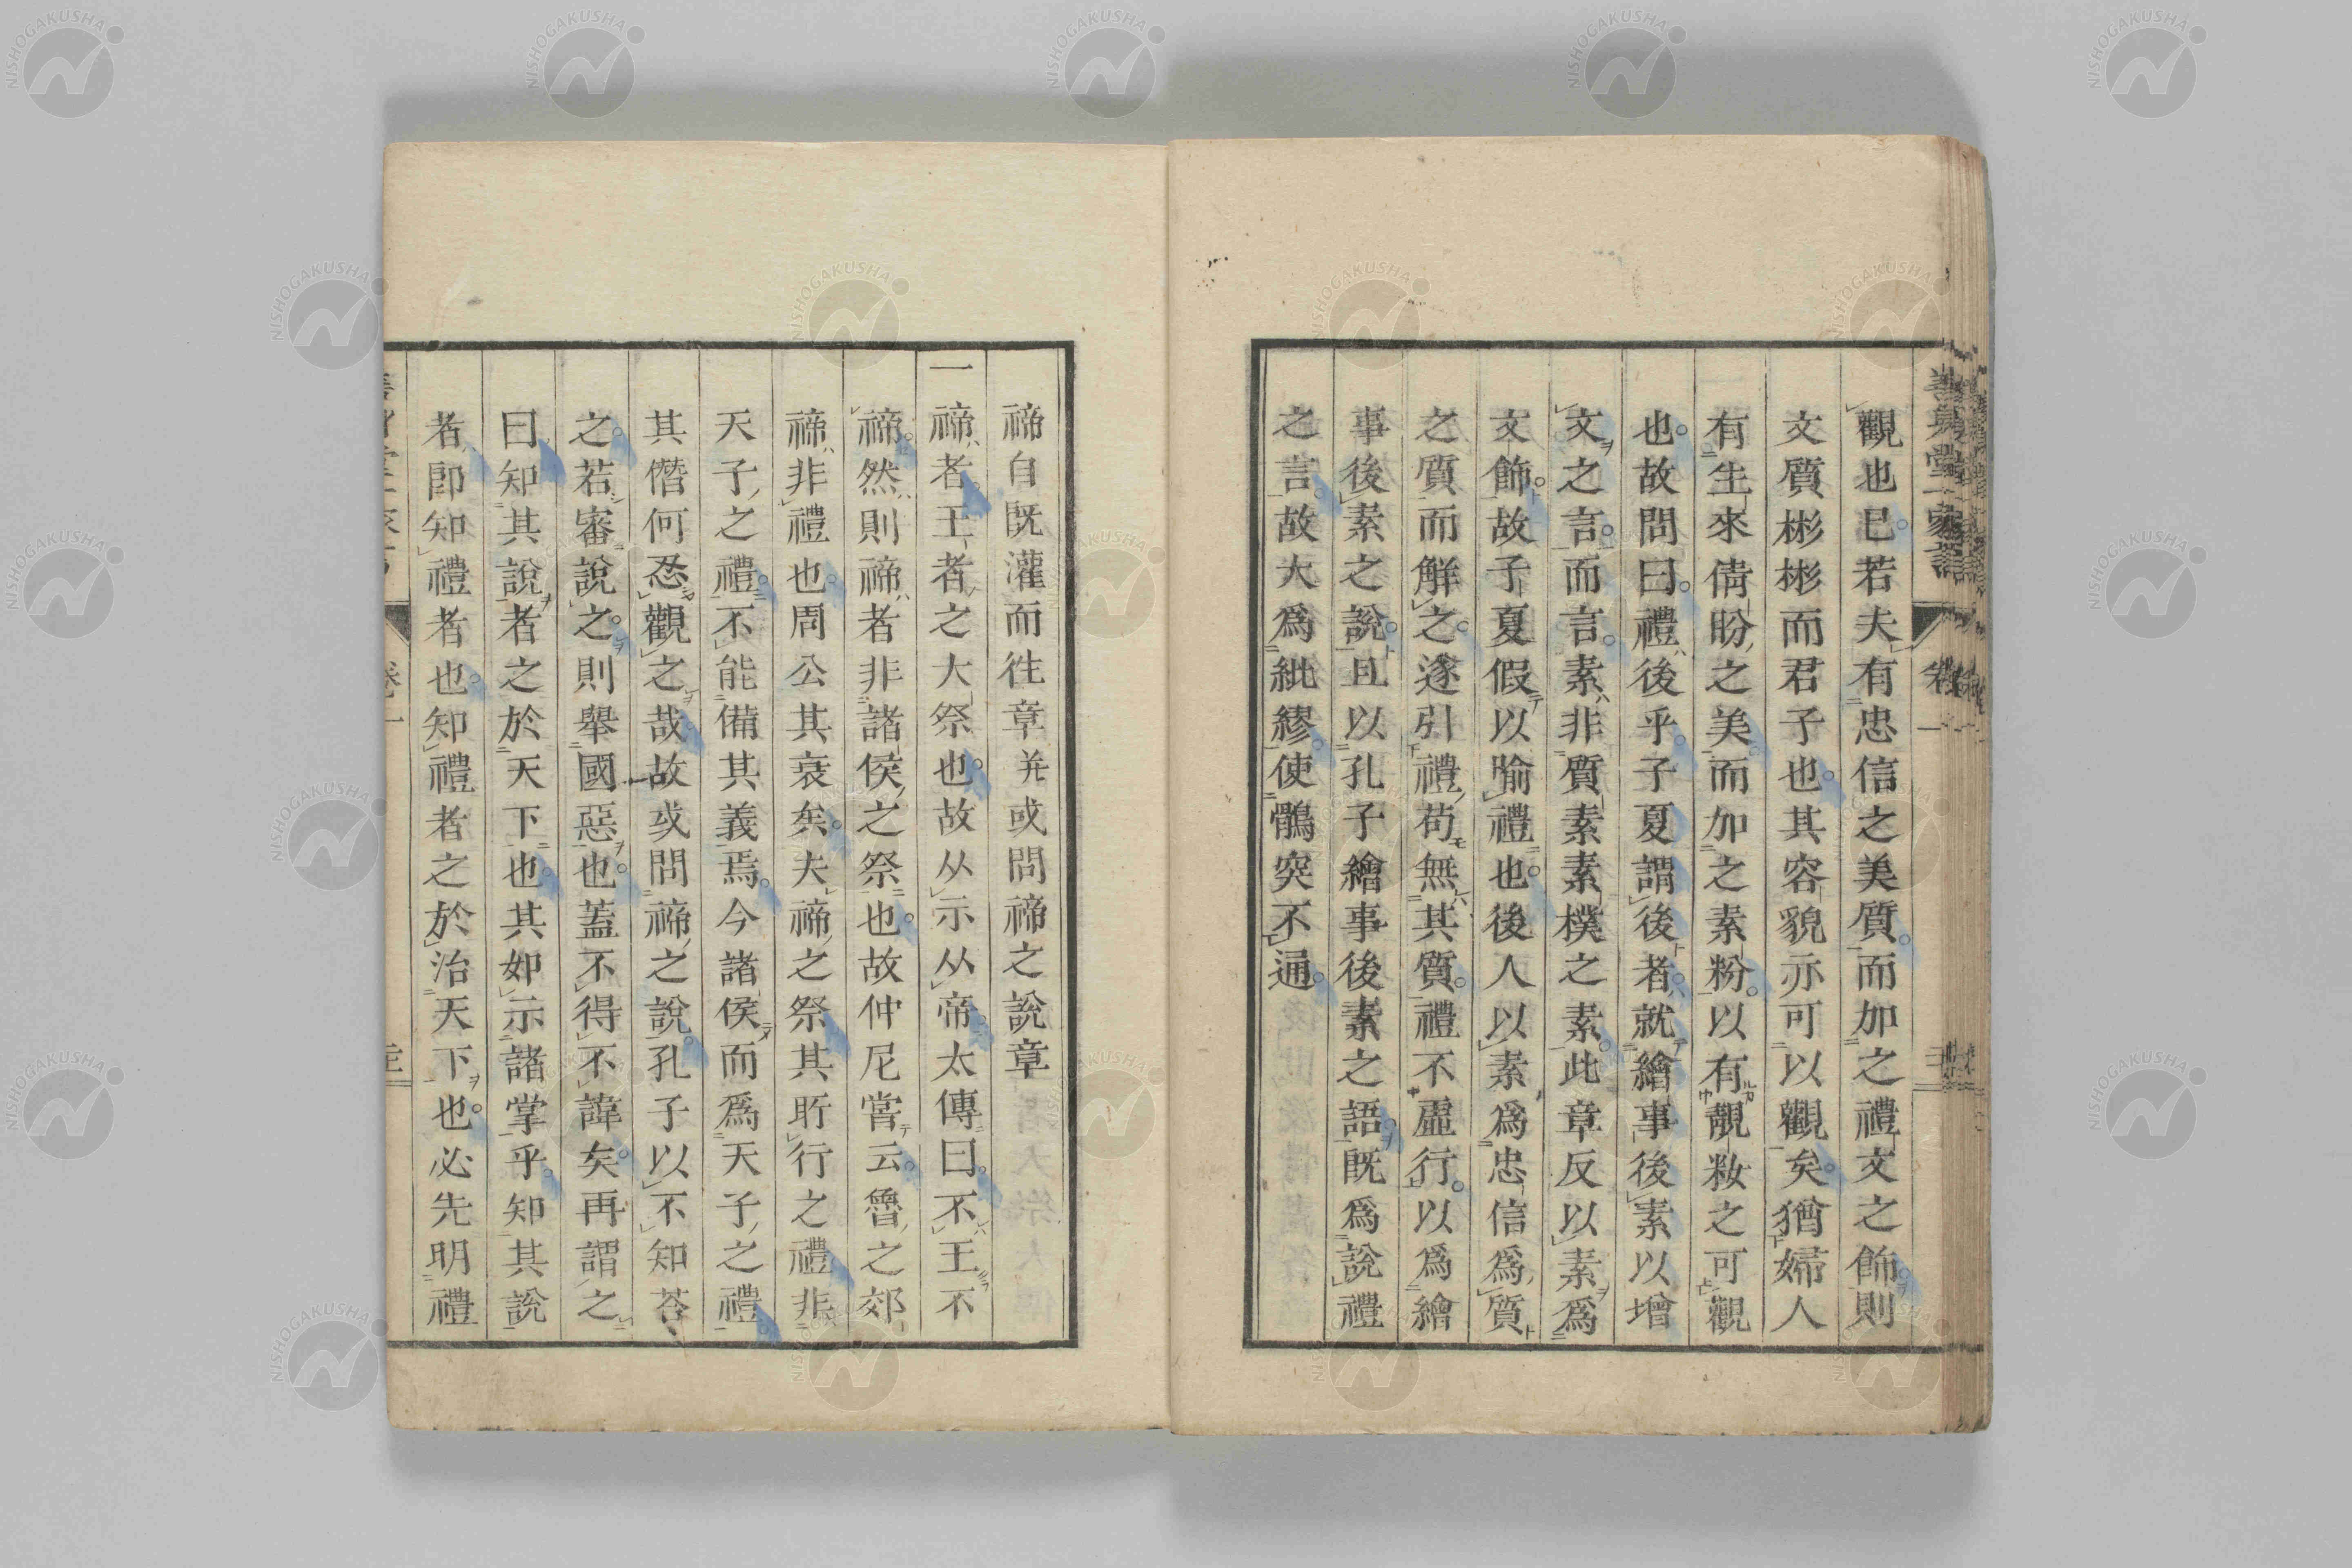 觀也已若夫有忠信之美質而加之禮文之飾則
文質彬彬而君子也其容貌亦可以觀矣猶婦人
有生來倩盼之美而加之素粉以有靚粧之可觀
也故問曰禮後乎子夏謂後者就繪事後素以增
文之言而言素非質素素樸之素此章反以素爲
文飾故子夏假以喻禮也後人以素爲忠信爲質
之質而解之遂引禮苟無其質禮不虛行以爲繪
事後素之說且以孔子繪事後素之語既爲說禮
之言故大爲紕繆使鶻突不通
禘自既灌而徃章并或問禘之說章
一禘者王者之大祭也故从示从帝太傳曰不王不
禘然則禘者非諸侯之祭也故仲尼嘗云魯之郊
禘非禮也周公其衰矣夫禘之祭其所行之禮非
天子之禮不能備其義焉今諸侯而爲天子之禮
其僭何忍觀之哉故或問禘之說孔子以不知荅
之若審說之則舉國惡也蓋不得不諱矣再謂之
曰知其說者之於天下也其如示諸掌乎知其說
者卽知禮者也知禮者之於治天下也必先明禮
卷一
NISHOGAKUSHA